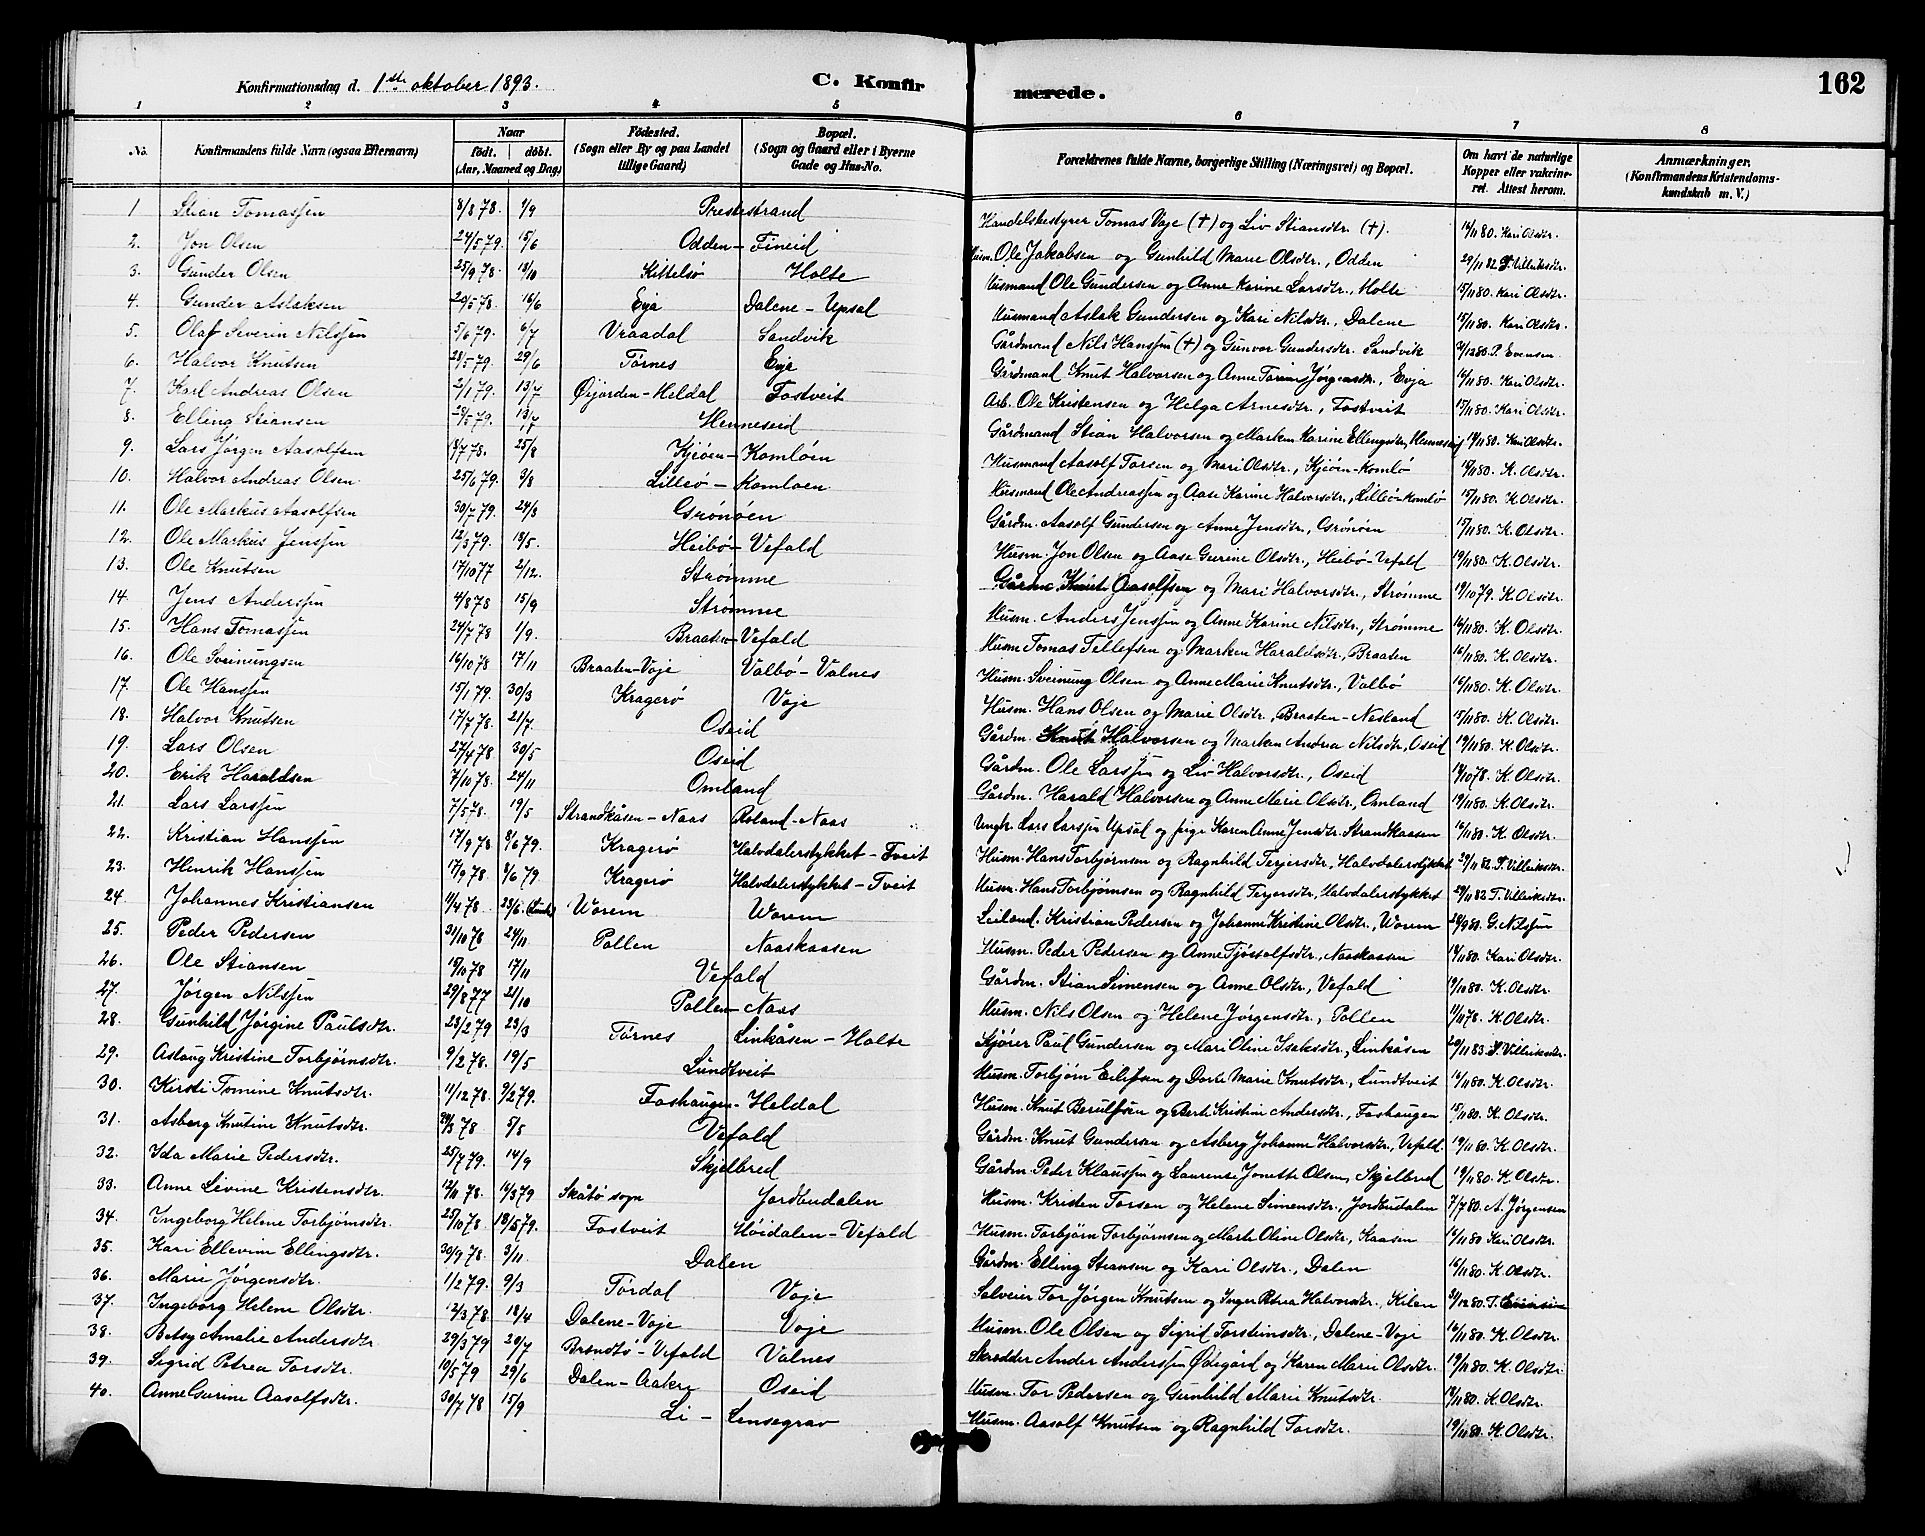 162
Konfirmationsdag d. 1ste oktober 1893. C. Konfirmerede.
1 2 3 4 5 6 7 8
No. Konfirmandens fulde Navn (ogsaa Efternavn) Naar født. døbt. (Aar, Maaned og Dag) Fødested. (Sogn eller By og paa Landet tillige Gaard) Bopæl. (Sogn og Gaard eller i Byerne Gade og Hus-No. Forældrenes fulde Navne, borgerlige Stilling (Næringsvei) og Bopæl. Om havt de naturlige Kopper eller vakcineret. Attest herom. Anmærkninger. (Konfirmandens Kristendomskundskab m. V.)
1 Stian Tomassen 8/8 78. 1/9 Prestestrand Handelsbestyrer Tomas Voje (†) og Liv Stiansdtr. (†). 16/11 80. Kari Olsdtr.
2. Jon Olsen 24/5 79. 15/6 Odden - Fineid Husm. Ole Jakobsen og Gunhild Marie Olsdtr., Odden 29/11 82 T. Villeiksdtr.
3. Gunder Olsen 25/9 78. 18/10 Kittelsø Holte Husmand Ole Gundersen og Anne Karine Larsdtr., Holte 15/11 80. Kari Olsdtr.
4. Gunder Aslaksen 20/5 78. 16/6 Eya Dalene - Upsal Husmand Aslak Gundersen og Kari Nilsdtr., Dalene 15/11 80. Kari Olsdtr.
5. Olaf Severin Nilssen 5/6 79. 6/7 Vraadal Sandvik Gårdmand Nils Hanssen (†) og Gunvor Gundersdtr. Sandvik 2/12 80. P. Evensen
6. Halvor Knutsen 28/5 79. 29/6 Tørnes Evje Gårdmand Knut Halvorsen og Anne Tomine Jørgensdtr., Evja 16/11 80. Kari Olsdtr.
7. Karl Andreas Olsen 2/1 79. 13/7 Øijorden - Heldal Fostveit Arb. Ole Kristensen og Helga Arnesdtr., Fostveit 15/11 80. Kari Olsdtr.
8. Elling Stiansen 29/5 79. 13/7 Henneseid Gårdmand Stian Halvorsen og Marken Karine Ellingsdtr, Henneseid 19/11 80. Kari Olsdtr.
9. Lars Jørgen Aasolfsen 18/7 78. 25/8 Kjøen - Komløen Husmand Aasolf Torsen og Mari Olsdtr., Kjøen - Komlø 16/11 80. K. Olsdtr.
10. Halvor Andreas Olsen 25/6 79. 3/8 Lilleø - Komløen Husmand Ole Andreassen og Aase Karine Halvorsdtr., Lilleø - Komlø 15/11 80. K. Olsdtr.
11. Ole Markus Aasolfsen 30/7 79. 24/8 Grønøen Gårdm. Aasolf Gundersen og Anne Jensdtr., Grønøen 15/11 80. K. Olsdtr.
12. Ole Markus Jenssen 12/3 79. 18/5. Heibø - Vefald Husm. Jon Olsen og Aase Gurine Olsdtr., Heibø - Vefald 19/11 80. K. Olsdtr.
13. Ole Knutsen 17/10 77 2/12. Strømme Gårdm. Knut Aasolfsen og Mari Halvorsdtr., Strømme 19/10 79. K. Olsdtr.
14. Jens Anderssen 4/8 78 15/9 Strømme Husm. Anders Jenssen og Anne Karine Nilsdtr., Strømme 16/11 80. K. Olsdtr.
15. Hans Tomassen 24/7 78 1/9. Braaten - Vefald Husm. Tomas Tellefsen og Marken Haraldsdtr., Braaten 16/11 80. K. Olsdtr.
16. Ole Sveinungsen 16/10 78 17/11 Braaten - Voje Valbø - Valnes Husm. Sveinung Olsen og Anne Marie Knutsdtr., Valbø 16/11 80. K. Olsdtr.
17. Ole Hanssen 15/1 79. 30/3 Kragerø Voje Husm. Hans Olsen og Marie Olsdtr., Braaten - Nasland 15/11 80. K. Olsdtr.
18. Halvor Knutsen 17/7 78. 21/7. Oseid Gårdm. Knut Halvorsen og Marken Andrea Nilsdtr, Oseid 19/11 80. K. Olsdtr.
19. Lars Olsen 27/4 78 30/5 Oseid Gårdm. Ole Larssen og Liv Halvorsdtr., Oseid 19/10 78. K. Olsdtr.
20. Erik Haraldsen 7/10 78. 24/11 Omland Gårdm. Harald Halvorsen og Anne Marie Olsdtr., Omland 19/11 80. K. Olsdtr.
21. Lars Larssen 7/5 78. 19/5 Strandkåsen - Naas Roland - Naas Ungk. Lars Larssen Upsal og pige Karen Anne Jensdtr. Strandkaasen 16/11 80. K. Olsdtr.
22. Kristian Hanssen 17/9 78 8/6 79. Kragerø Halvdalerstykket - Tveit Husm. Hans Torbjørnsen og Ragnhild Terjersdtr., Halvdalerstykket 29/11 82. T. Villeiksdtr.
23. Henrik Hanssen 17/9 78. 8/6 79 Kragerø Halvdalerstykket - Tveit Husm. Hans Torbjørnsen og Ragnhild Terjersdtr, Halvdalerstykket 29/11 82 T. Villeiksdtr.
24. Johannes Kristiansen 11/4 78. 23/6. Worem Worem Leiland. Kristian Pedersen og Johanne Kristine Olsdtr., Worem 28/9 80. G. Nilssen
25. Peder Pedersen 31/10 78 24/11. Pollen Naaskaasen Husm. Peder Pedersen og Anne Tjøsolfsdtr., Naaskaasen 14/11 80. Kari Olsdtr.
26. Ole Stiansen 15/10 78 17/11 Vefald Gårdm. Stian Simensen og Anne Olsdtr., Vefald 19/10 80. K. Olsdtr.
27. Jørgen Nilssen 29/8 77 21/10 Pollen - Naas Husm. Nils Olsen og Helene Jørgensdtr., Pollen 11/11 78. K. Olsdtr.
28. Gunhild Jørgine Paulsdtr. 23/2 79 23/3 Tørnes Linkåsen - Holte Kjører Paul Gundersen og Mari Oline Isaksdtr., Linkåsen 29/11 83 T. Villeiksdtr.
29. Aslaug Kristine Torbjørnsdtr. 9/2 78. 19/5 Lundtveit Husm. Torbjørn Eilifsen og Dorte Marie Knutsdtr., Lundtveit 16/11 80. K. Olsdtr.
30. Kirsti Tomine Knutsdtr. 11/12 78. 9/2 79. Foshaugen - Heldal Husm. Knut Berulfsen og Berte Kristine Andersdtr., Foshaugen 15/11 80. K. Olsdtr.
31. Asberg Knutine Knutsdtr. 29/3 78 5/5 Vefald Gårdm. Knut Gundersen og Asberg Johanne Halvorsdtr., Vefald. 19/11 80. K. Olsdtr.
32. Ida Marie Pedersdtr. 25/7 79. 14/9 Skjelbred Gårdm. Peder Klaussen og Laurense Jonette Olsen, Skjelbred 19/11 80. K. Olsdtr.
33. Anne Levine Kristensdtr. 12/11 78. 16/3 79 Skåtø sogn Jordbudalen Husm. Kristen Torsen og Helene Simensdtr., Jordbudalen 7/7 80. A. Jørgensen
34. Ingeborg Helene Torbjørnsdtr. 25/10 78. 18/5 79. Fostveit Høidalen - Vefald Husm. Torbjørn Torbjørnsen og Marte Oline Olsdtr., Kaasen 16/11 80 Kari Olsdtr.
35. Kari Ellevine Ellingsdtr. 30/9 78. 3/11. Dalen Gårdm. Elling Stiansen og Kari Olsdtr., Dalen 16/11 80. K. Olsdtr.
36. Marie Jørgensdtr. 1/2 79. 9/3 Tørdal Voje Selveier Tor Jørgen Knutsen og Inger Petrea Halvorsdtr., Kilen 31/12 80. T.
37. Ingeborg Helene Olsdtr. 12/3 78 18/4 Dalene - Voje Voje Husm. Ole Olsen og Sigrid Torsteinsdtr., Dalene - Voje 16/11 80. K. Olsdtr.
38. Betsy Amalie Andersdtr. 29/3 79 20/7 Brøndtø - Vefald Valnes Skrædder Ander Anderssen Ødegård og Karen Marie Olsdtr. 19/11 80. K. Olsdtr.
39. Sigrid Petrea Torsdtr. 10/5 79 29/6 Dalen - Aakre Oseid Husm. Tor Pedersen og Gunhild Marie Knutsdtr. 19/11 80. K. Olsdtr.
40. Anne Gurine Aasolfsdtr. 30/7 78 15/9 Li - Lensegrav Husm. Aasolf Knutsen og Ragnhild Torsdtr. 19/11 80. K. Olsdtr.